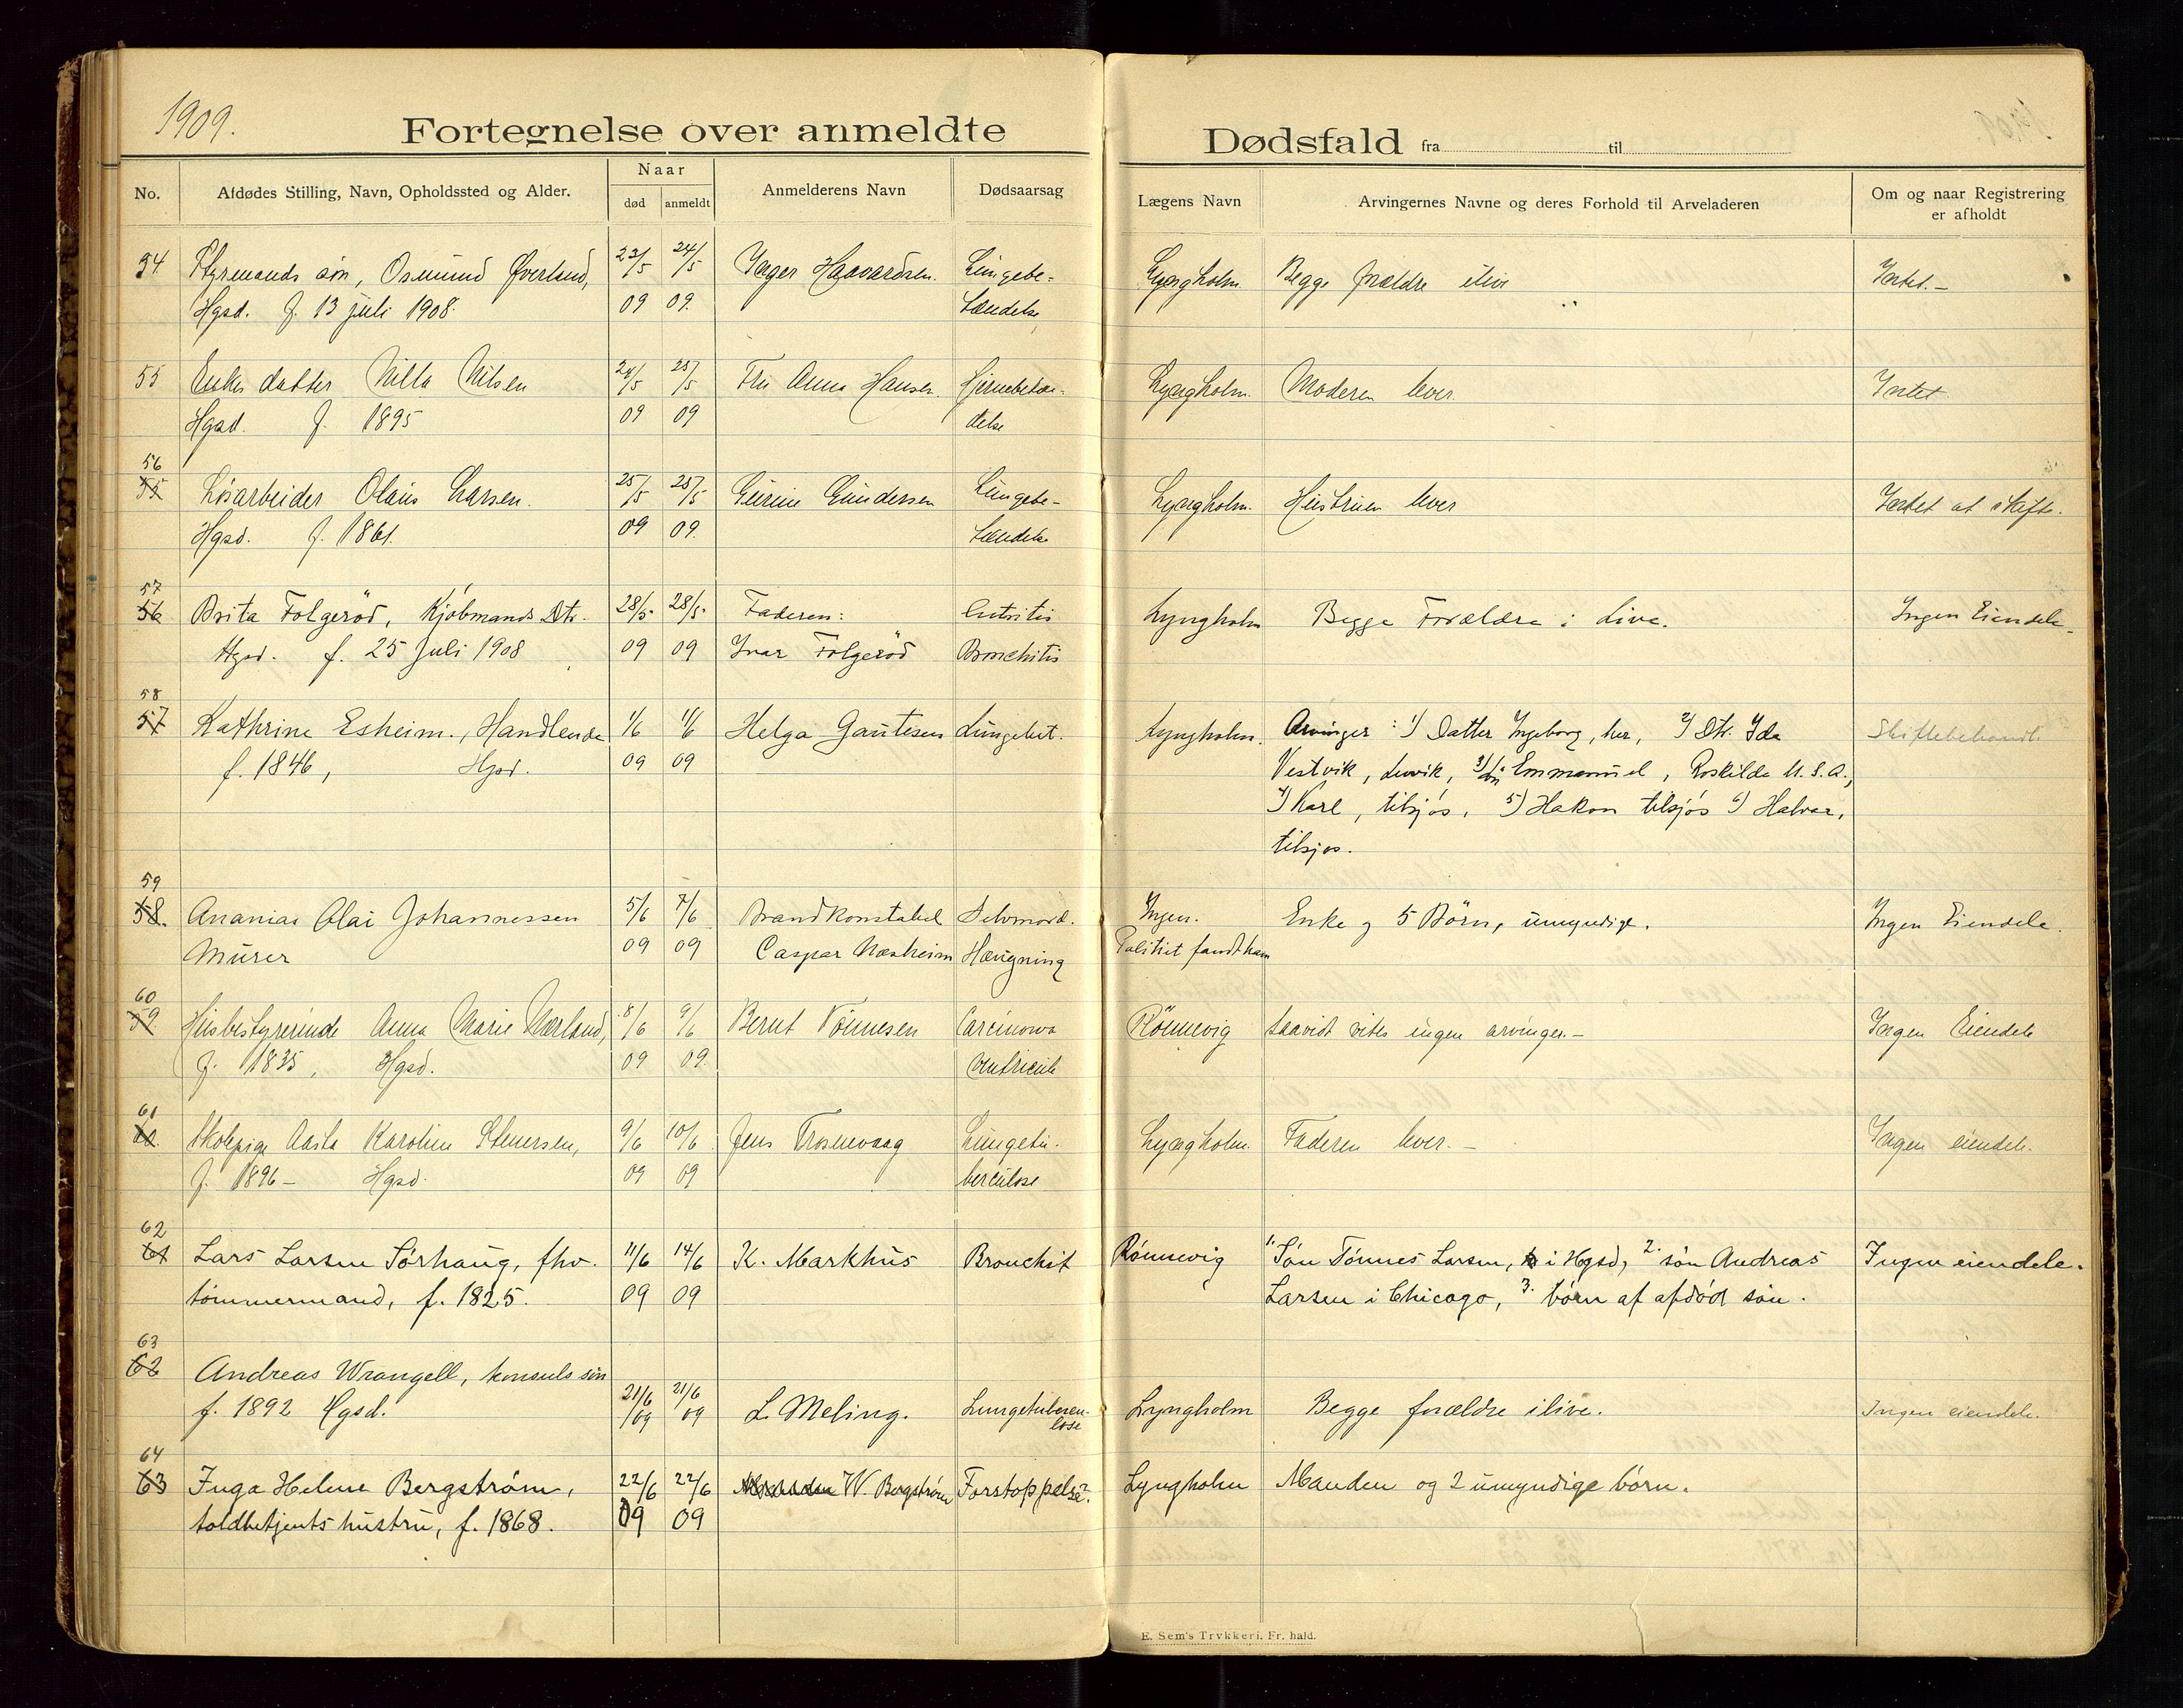 1909.
Fortegnelse over anmeldte Dødsfald fra til
No. Afdødes Stilling, Navn, Opholdssted og Alder. Naar død anmeldt Anmelderens Navn Dødsaarsag Lægens Navn Arvingernes Navne og deres Forhold til Arveladeren Om og naar Registrering er afholdt
54 Styrmands søn, Osmund Øverland, 23/5 24/5 Inger Haavardsen. Lungebe- Lyngholm Begge forældre ilive Intet.-
Hgsd. f. 13 juli 1908. 09 09. tændelse
55 Enkes datter Nilla Nilsen 24/5 25/5 Fru Anna Hansen. Hjernebetæn- Lyngholm. Moderen lever. Intet
Hgsd. f. 1895 09 09 delse
56
55 Løsarbeider Olaus Larsen. 25/5 25/5 Gurine Gundersen Lungebe- Lyngholm. Hustruen lever Intet at skifte.
Hgsd. f. 1861. 09 09. tændelse
57
56 Brita Folgerød, Kjøbmands Dtr. 28/5 28/5 Faderen: Entritis Lyngholm Begge Forældre i Live. Ingen Eiendele.
Hgsd. f. 25 Juli 1908 09 09 Ivar Folgerød Bronchitis
58
57 Kathrine Esheim., Handlende 1/6 1/6 Helga Gautesen Lungebet. Lyngholm. Arvinger: 1) Datter Ingeborg, her, 2) Dtr. Ida Skiftebehandl.
f. 1846, Hgsd. 09 09 Vestvik, Levvik, 3) Sn Emmanuel, Roskilde U.S.A.,
4) Karl, tilsjøs, 5) Hakon tilsjøs 6) Halvar,
tilsjøs.
59
58. Ananias Olai Johannessen 5/6 7/6 Brandkonstabel Selvmord. Ingen. Enke og 5 Børn, umyndige. Ingen Eiendele.
Murer 09 09 Caspar Næsheim Hængning Politiet fandt ham
60
59. Husbestyrerinde Anna Marie Nærland, 8/6 9/6 Bernt Tønnesen Carcinoma Rønnevig saavidt vides ingen arvinger.- Ingen Eiendele
f. 1835, Hgsd. 09 09. ventriculi
61
60. Skolepige Aasta Karoline Steuersen, 9/6 10/6 Jens Trosnevaag Lungetu- Lyngholm. Faderen lever.- Ingen eiendele.
f. 1896- Hgsd. 09 09 berculose
62
61 Lars Larsen Sørhaug, fhv. 11/6 14/6 K. Markhus Bronchit Rønnevig 1. Søn Tønnes Larsen, i Hgsd, 2. søn Andreas Ingen eiendele.
tømmermand, f. 1825. 09 09 Larsen i Chicago, 3. børn af afdød søn.
63
62 Andreas Wrangell, konsuls søn
f. 1892 Hgsd. 21/6 /09 21/6 09 L. Meling. Lungetubercu- Lyngholm Begge forældre ilive. Ingen eiendele.
lose
64
63 Inga Helene Bergstrøm, 22/6 22/6 W. Bergstrøm Forstoppelse?. Lyngholm Manden og 2 umyndige børn.
toldbetjents hustru, f. 1868. 09 09
E. Sem's Trykkeri. Fr. hald.